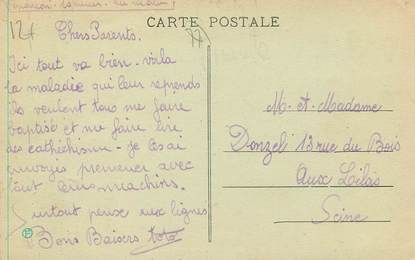 CARTE POSTALE
Chers Parents.
Ici tout va bien - voila
la maladie qui leur reprends
ils veulent tous me faire
baptisé et me faire lire
des cathéchisme - je les ai
envoyés premener avec
tout leurs machins.
Surtout pense aux lignes
Bons Baisers toto
M. et Madame
Donzel 13 rue du Bois
Aux Lilas
Seine